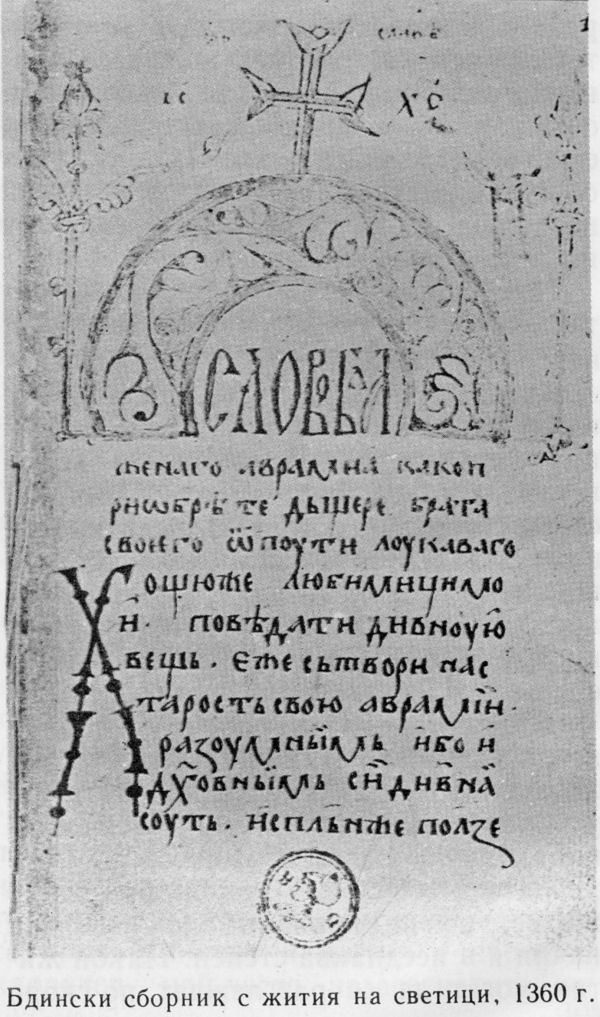 ІС ХС
СЛОВО БЛ
женаго авраамиа како п
риѡбрѣте дьщере брата
своего ѿ поути лоукаваго
Хощюже любимици мо
и. повѣдати дивноую
вещь. еже сътвори на с
тарость свою авраамїи.
разоумныимь ибо и
дх҃овныимь си дивна
соуть. исплънже ползе
Бдински сборник с жития на светици, 1360 г.